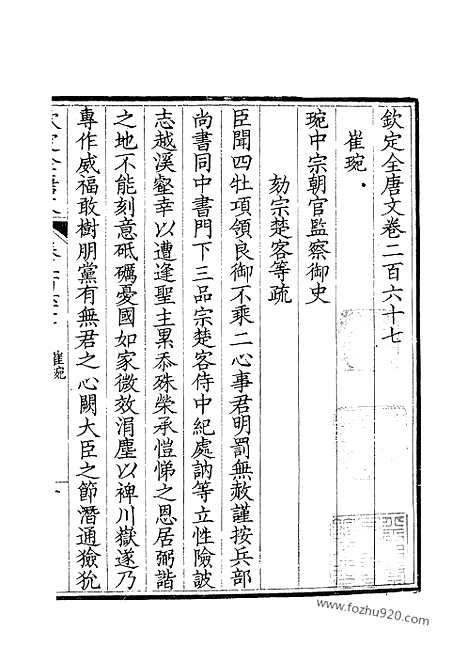 欽定全唐文卷二百六十七
崔琬
琬中宗朝官監察御史
劾宗楚客等疏
臣聞四牡項領良御不乘二心事君明罰無赦謹按兵部
尚書同中書門下三品宗楚客侍中紀處訥等立性險詖
志越溪壑幸以遭逢聖主累忝殊榮承愷悌之恩居弼諧
之地不能刻意砥礪憂國如家微效涓塵以裨川嶽遂乃
專作威福敢樹朋黨有無君之心闕大臣之節潛通獫狁
崔琬
www.fozhu920.com